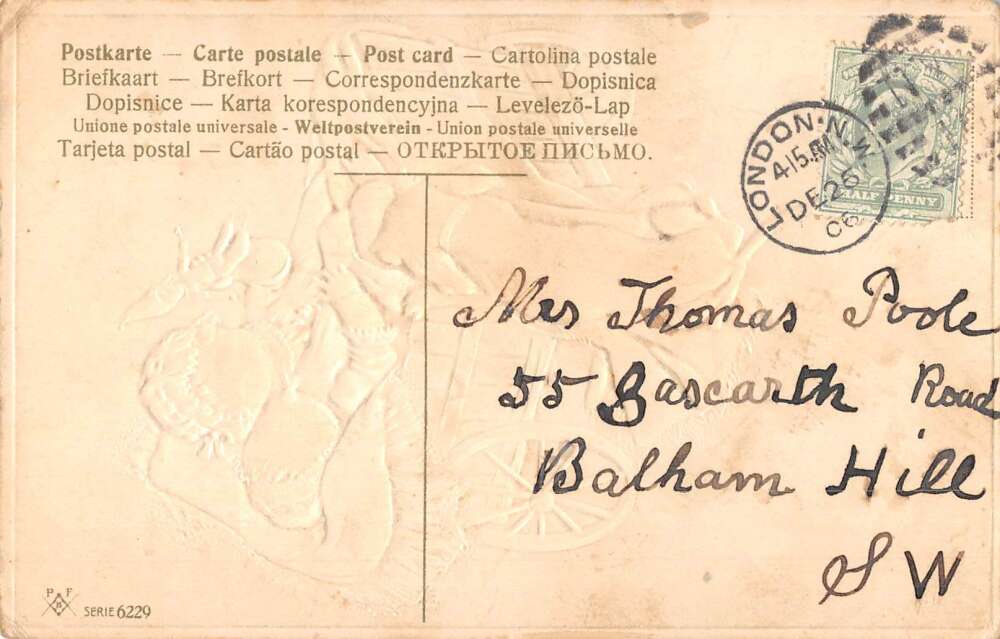 Postkarte — Carte postale — Post card — Cartolina postale
Briefkaart — Brefkort — Correspondenzkarte — Dopisnica
Dopisnice — Karta korespondencyjna — Levelezö-Lap
Unione postale universale - Weltpostverein - Union postale universelle
Tarjeta postal — Cartão postal — ОТКРЫТОЕ ПИСЬМО.
LONDON.N.W.
4 15 AM
DE 26
06
HALF PENNY
Mrs Thomas Poole
55 Gascarth Road
Balham Hill
S W
P F
B
SERIE 6229